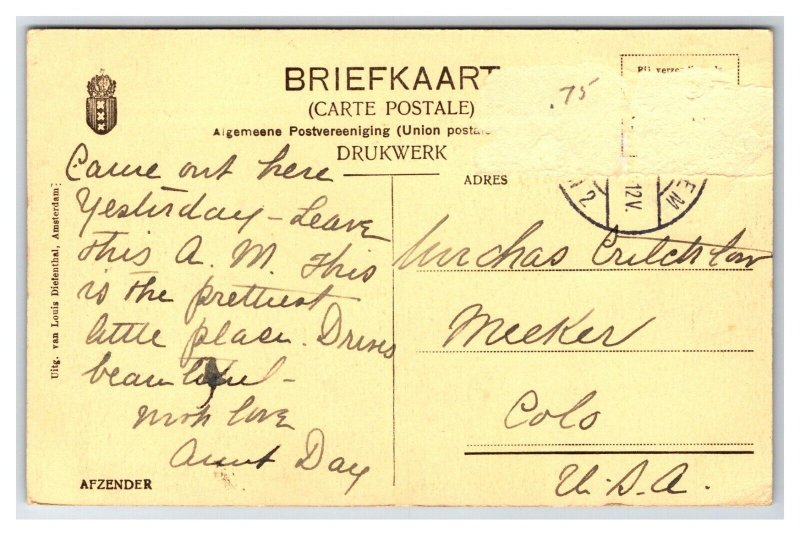 BRIEFKAART
(CARTE POSTALE)
Algemeene Postvereeniging (Union posta
DRUKWERK
.75
Bij
ADRES
2
12V.
EM
Came out here
Yesterday - Leave
this A. M. This
is the prettiest
little place. Drives
beautiful -
with love
Aunt Day
Mrs Chas Critchlow
Meeker
Colo
U.S.A.
AFZENDER
Uitg. van Louis Diefenthal, Amsterdam.